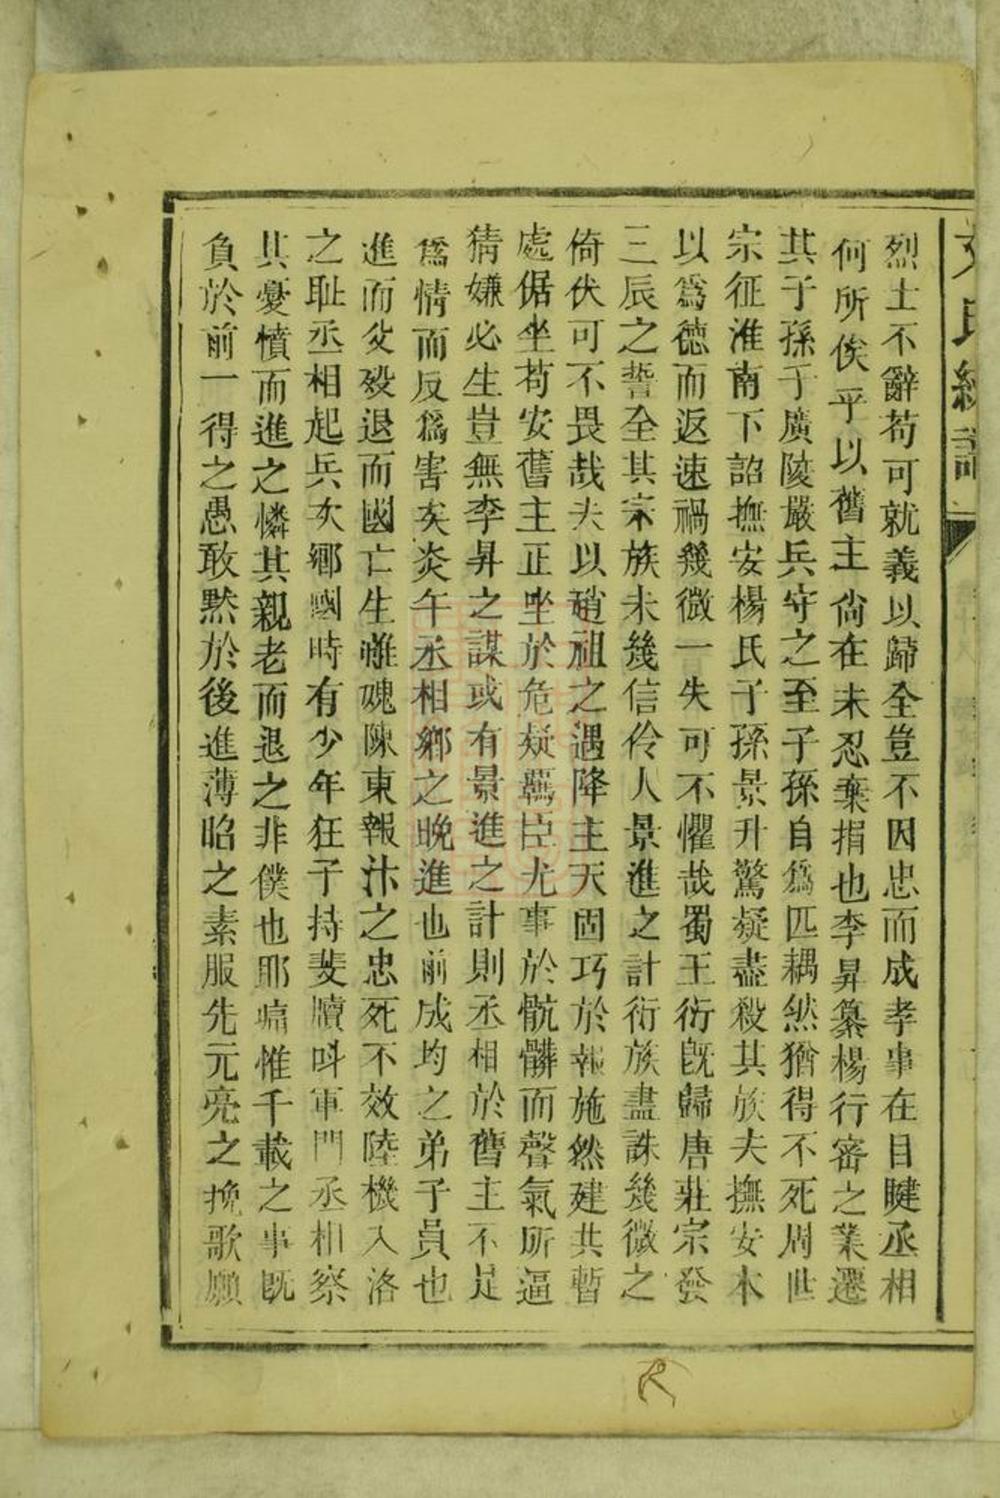 文氏經譜
烈士不辭苟可就義以歸全豈不因忠而成孝事在目睫丞相
何所俟乎以舊主尙在未忍棄捐也李昇纂楊行密之業遷
其子孫于廣陵嚴兵守之至子孫自爲匹耦然猶得不死周世
宗征淮南下詔撫安楊氏子孫景升驚疑盡殺其族夫撫安本
以爲德而返速禍幾微一失可不懼哉蜀王衍旣歸唐莊宗發
三辰之誓全其宗族未幾信伶人景進之計衍族盡誅幾微之
倚伏可不畏哉夫以 祖之遇降主天固巧於報施然建共暫
處倨坐苟安舊主正坐於危疑羈臣尤事於骯髒而聲氣所逼
猜嫌必生豈無李昇之謀或有景進之計則丞相於舊主不足
爲情而反爲害矣炎午丞相鄉之晚進也前成均之弟子員也
進而父歿退而國亡生雖魂陳東報汴之忠死不效陸機入洛
之耻丞相起兵次鄉國時有少年狂子持斐牘呌軍門丞相察
其憂憤而進之憐其親老而退之非僕也耶痛惟千載之事旣
負於前一得之愚敢黙於後進薄昭之素服先元亮之挽歌願